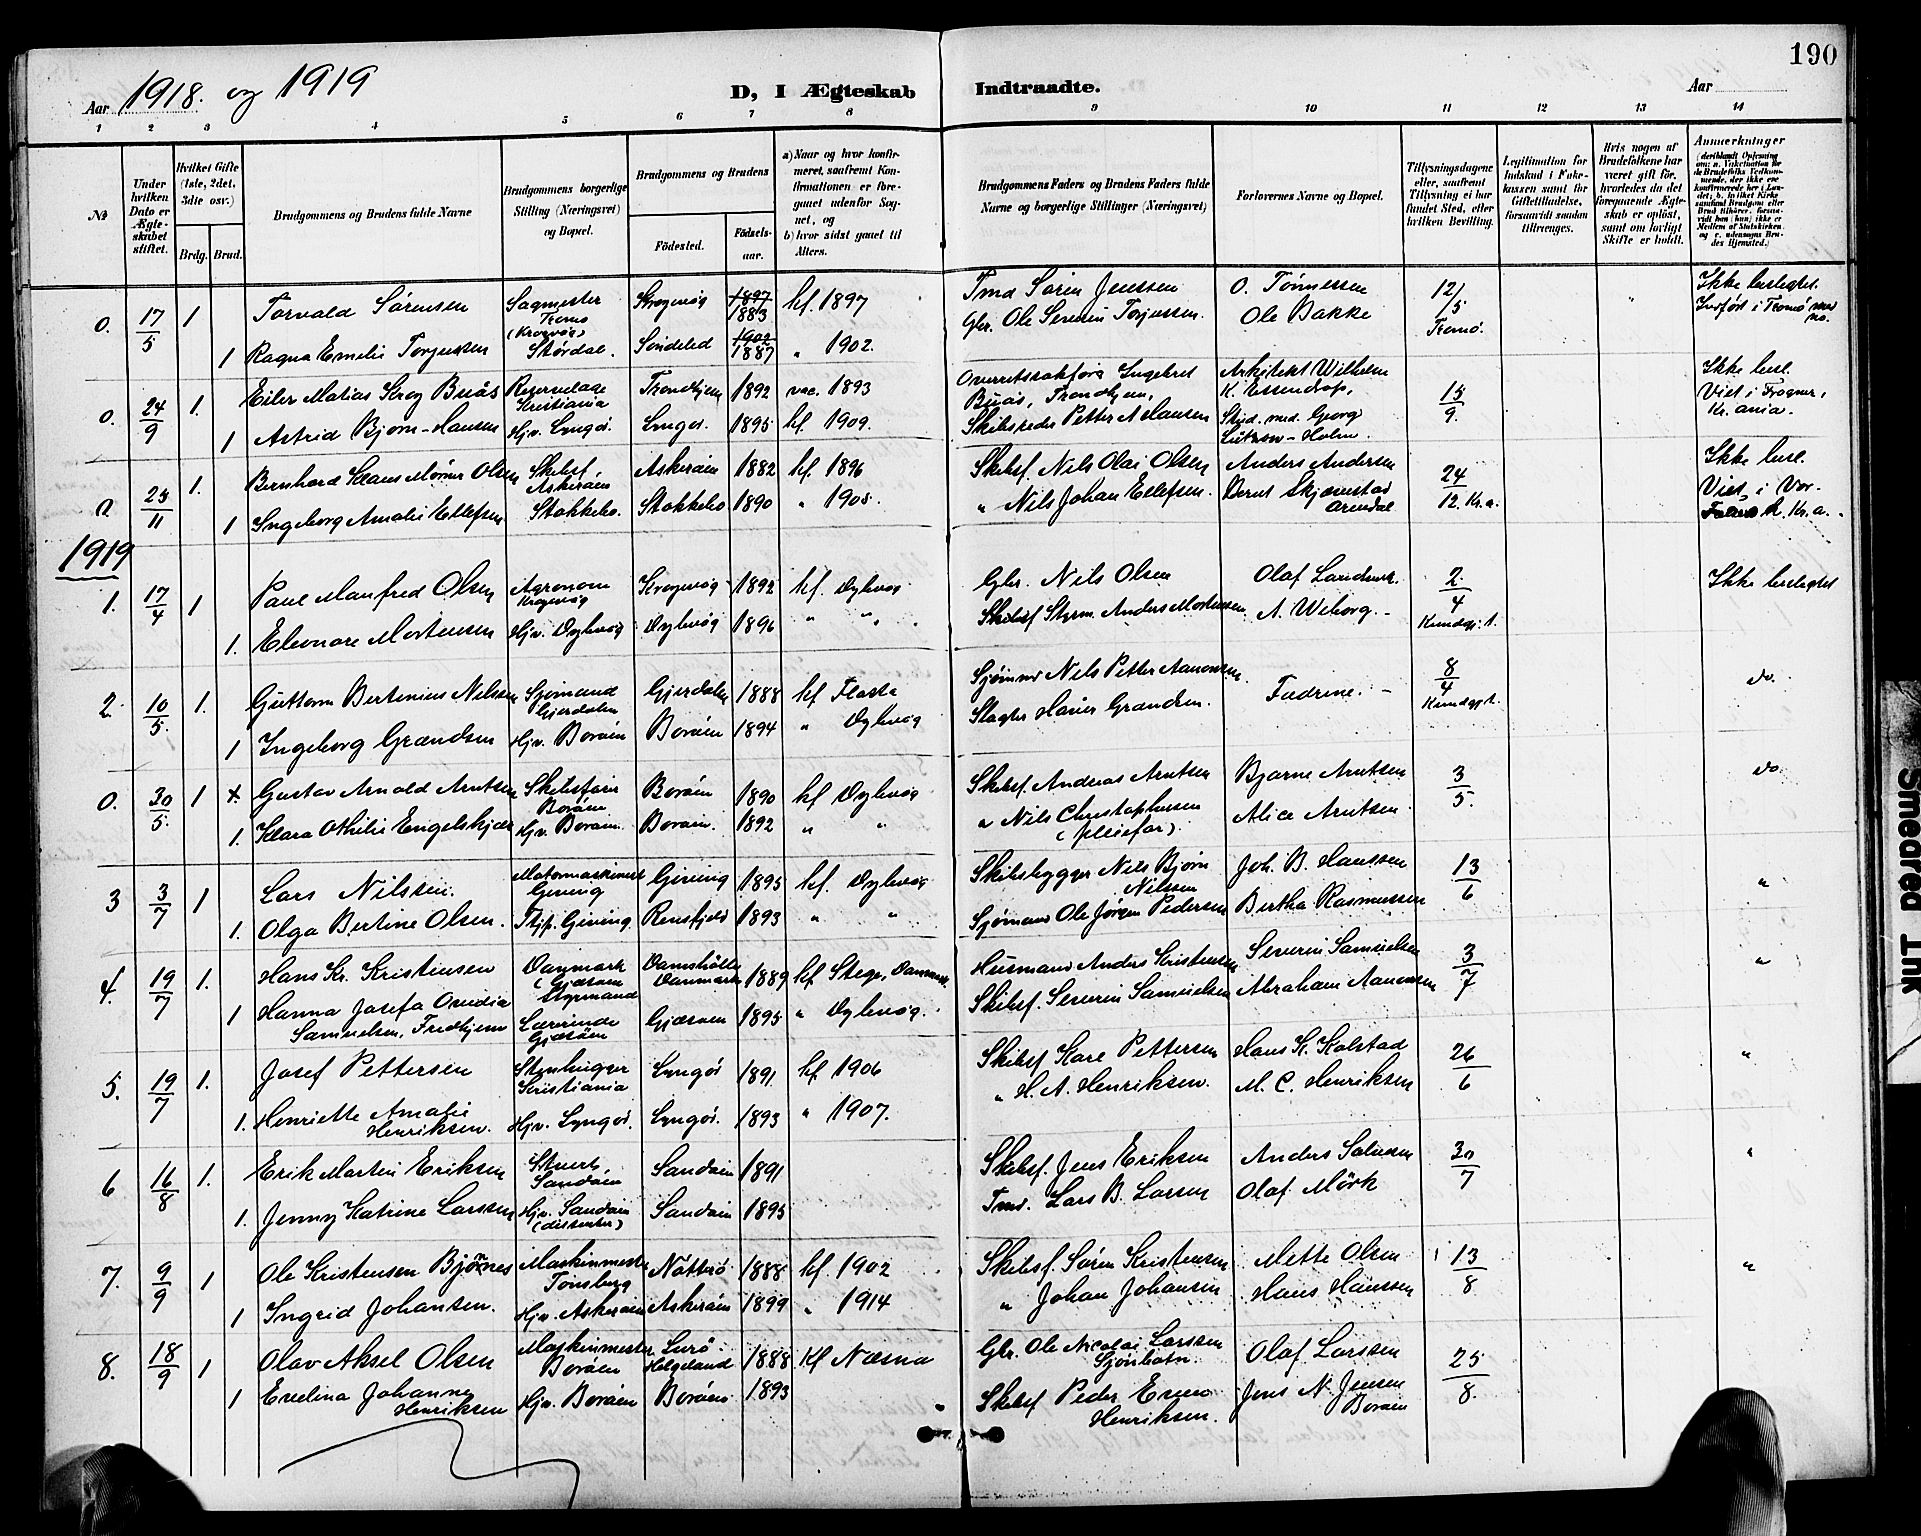 190
Aar 1918. og 1919
D, I Ægteskab Indtraadte.
Aar
1 2 3 4 5 6 7 8 9 10 11 12 13 14
No
Under hvilken Dato er Ægteskabet stiftet.
Hvilket Gifte (1ste, 2det, 3die osv.)
Brdg. Brud.
Brudgommens og Brudens fulde Navne
Brudgommens borgerlige Stilling (Næringsvei) og Bopæl.
Brudgommens og Brudens
Fødested.
Fødselsaar.
a) Naar og hvor konfirmeret, saafremt Konfirmationen er foregaaet udenfor Sognet, og
b) hvor sidst gaaet til Alters.
Brudgommens Faders og Brudens Faders fulde Navne og borgerlige Stillinger (Næringsvei)
Forlovernes Navne og Bopæl.
Tillysningsdagene eller, saafremt Tillysning ei har fundet Sted, efter hvilken Bevilling.
Legitimation for Indskud i Enkekassen samt for Giftetilladelse, forsaavidt saadan tiltrænges.
Hvis nogen af Brudefolkene har været gift før, hvorledes da det foregaaende Ægteskab er opløst, samt om lovligt Skifte er holdt.
Anmærkninger
0. 17/5 1 Torvald Sørensen Sagmester Tromø (Krogevåg) Krogevåg 1897 1883 kf 1897 Tmd Søren Jenssen O. Tønnessen 12/5 Tromø. Ikke beslegtet. Indført i Tromø
1 Ragna Emelie Torjussen Størdal. Søndeled 1902 1887 " 1902. Gbr. Ole Severin Torjussen. Ole Bakke
0. 24/9 1. Eiler Matias Krog Buås Kristiania Trondhjem 1892 vac. 1893 Overretssakfører Ingebret Buås, Trondhjem, Arkitekt Wilhelm K. Essendop, 15/9. Ikke besl. Viet i Frogner, Kr.ania.
1 Astrid Bjørn-Hansen Hjv. Lyngør. Lyngør. 1895 kf. 1909. Skibsreder Petter A Hansen Stud. med. Georg Lützow-Holm.
0 25/11 1. Bernhard Klaus Mørner Olsen Skibsf. Askerøen Askerøen 1882 kf. 1896 Skibsf. Nils Olai Olsen Anders Andersen 24/12. Kr.a. Ikke besl. Viet i Kr.a.
1 Ingeborg Amalie Ellefsen Stokkebo. Stokkebo 1890 " 1905. " Nils Johan Ellefsen. Bernt Skjævestad Arendal
1919
1. 17/4 1 Paul Manfred Olsen Agronom Krogevåg Krogevåg 1892 kf. Dybvåg Gbr. Nils Olsen Olaf Landmrk. 2/4 Kundgj. t. Ikke beslegtet
1. Eleonore Mortensen Hjv. Dybvåg Dybvåg 1896 " " Skibsf Styrm. Anders Mortensen A. Wiborg.
2 10/5. 1. Guttorm Bertinius Nilssen Sjømand Gjerdalen Gjerdalen 1888 kf Flosta Sjømnd Nils Petter Aanonsen Fadrene. 8/4 Kundgj. t. do.
1 Ingeborg Grændsen Hjv. Borøen Borøen 1894 " Dybvåg Slagter Hans Grændsen.
0. 30/5. 1 x. Gustav Arnold Arntsen Skibsfører Borøen Borøen 1890 kf Dybvåg Skibsf. Andreas Arntsen Bjarne Arntsen 3/5. do.
1. Klara Othilie Engelskjær Hjv. Borøen. Borøen. 1892 " " " Nils Christophersen (pleiefar). Alice Arntsen
3 3/7 1 Lars Nilssen. Motormaskinist Geving Geving 1895 kf. Dybvåg Skibsbygger Nils Bjørn Nilssen Joh. B. Hanssen 13/6 "
1. Olga Bertine Olsen. Tjp. Geving. Rensfjeld 1893 " " Sjømand Ole Jørgen Pedersen Bertha Rasmussen
4. 19/7 1. Hans Kr. Kristensen Danmark (Gjæsøen Styrmand Damshølte Danmark 1889 kf Stege, Danmark. Husmand Anders Kristensen Severin Samuelsen 3/7 "
1 Hanna Josefa Ovidia Samuelsen, Fredhjem Lærerinde Gjæsøen Gjæsøen 1895 " Dybvåg. Skibsf. Severin Samuelsen Abraham Aanonsen
5. 19/7 1. Josef Pettersen Kristiania Lyngør 1891 kf 1906 Skibsf Karl Pettersen Hans K. Kolstad 26/6 "
1. Henriette Amalie Henriksen. Hjv. Lyngør. Lyngør. 1893 " 1907. " H. A. Henriksen. M. C. Henriksen
6 16/8 1. Erik Martin Eriksen Stuert, Sandøen Sandøen 1891 Skibsf. Jens Eriksen Anders Salvesen 30/7 "
1. Jenny Katrine Larssen Hjv. Sandøen (dissenter) Sandøen 1895 Tmd. Lars B. Larsen Olaf Mörk
7. 9/9 1 Ole Kristensen Bjørnes Maskinmester Tønsberg Nötterö 1888 kf. 1902 Skibsf. Søren Kristensen Mette Olsen 13/8 "
1 Ingrid Johansen. Hjv. Askerøen Askerøen 1899 " 1914 " Johan Johansen Hans Hanssen
8. 18/9 1 Olav Aksel Olsen Maskinmester Borøen Lurö. Helgeland 1888 Kf Næsna Gbr. Ole Nicolai Larssen Sjönbotn. Olaf Larssen 25/8.
1 Evelina Johanne Henriksen Hjv. Borøen Borøen 1893 " Skibsf Peder Enevo Henriksen. Jens N. Jensen Borøen
Smeared Ink